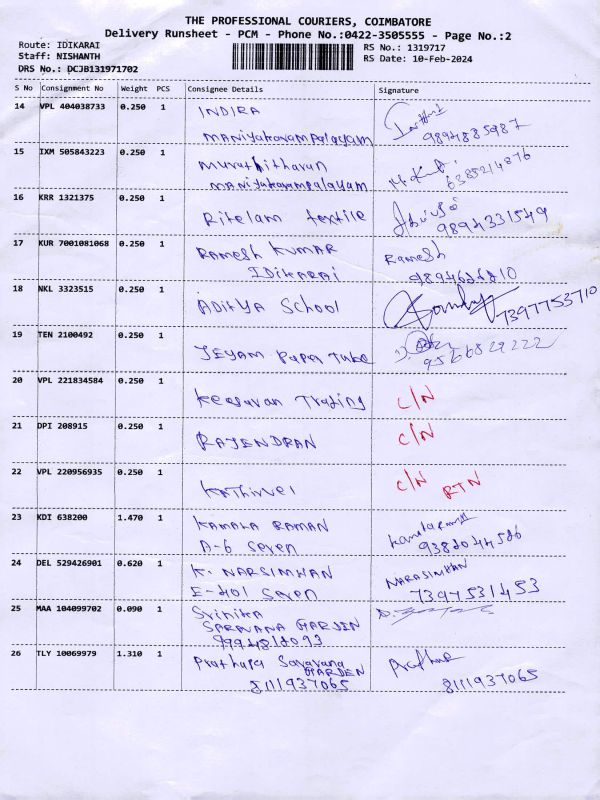 THE PROFESSIONAL COURIERS, COIMBATORE
Delivery Runsheet - PCM - Phone No.:0422-3505555 - Page No.:2
Route: IDIKARAI
RS No.: 1319717
Staff: NISHANTH
RS Date: 10-Feb-2024
DRS No.: DCJB131971702
S No Consignment No Weight PCS Consignee Details Signature
14 VPL 404038733 0.250 1 INDIRA
maniyakarampalayam 9894885987
15 IXM 505843223 0.250 1
maniyakarampalayam 6385214876
16 KRR 1321375 0.250 1
Ritelam textile 9894331549
17 KUR 7001081068 0.250 1 Ramesh Kumar Ramesh
IDikarai
18 NKL 3323515 0.250 1
ADITYA School 7397753710
19 TEN 2100492 0.250 1
JEYAM Papa Tube 9566829222
20 VPL 221834584 0.250 1
Keesavan Trading C/N
21 DPI 208915 0.250 1
RAJENDRAN C/N
22 VPL 220956935 0.250 1
Kathirvel C/N RTN
23 KDI 638200 1.470 1 KAMALA RAMAN
A-6 Seven
24 DEL 529426901 0.620 1 K. NARSIMHAN NARASIMHAN
E-401 Seven 7397531453
25 MAA 104099702 0.090 1 Srinika
SARAVANA GARDEN
9994812093
26 TLY 10069979 1.310 1 Prathapa Saravana
GARDEN
8111937065 8111937065